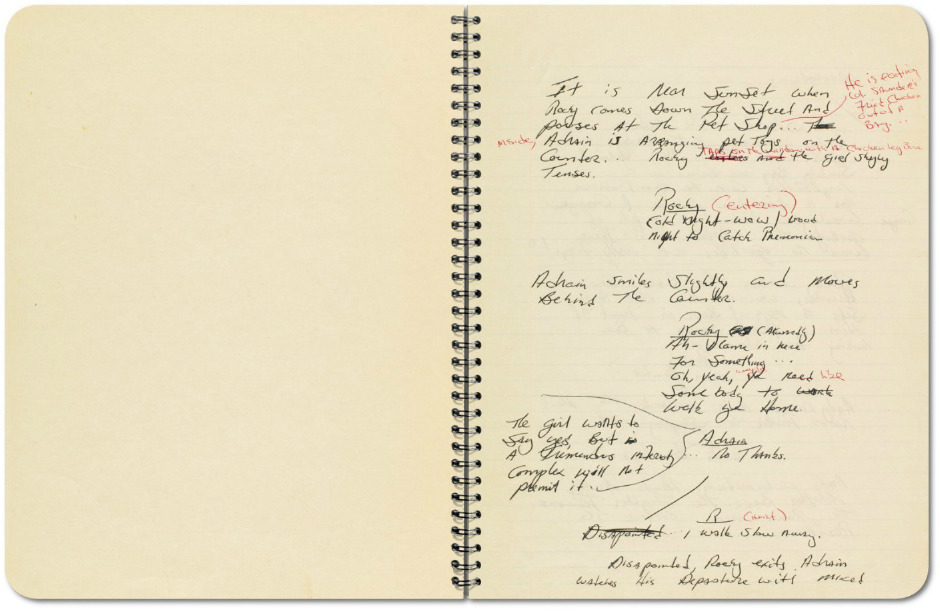 It is Near Sunset when
Rocky comes Down The Street And
pauses At The Pet Shop... The
He is eating
Col Saunders
Fried Chicken
out of A
Bag...
Adrain is Arranging pet Toys on the
Counter... Rocky enters And the girl shyly
TAPS on the window with A Chicken leg Bone
Tenses.
Rocky (entering)
Cold Night - wow / Good
Night to Catch Pnemonia
Adrain smiles slightly and Moves
Behind The Counter.
Rocky (Akwardly)
Ah - I came in here
For Something ...
Oh, yeah, ya need like
Some body to walk
walk ya Home.
The girl wants to
Say yes, But
A Tremendous inferority
Complex will not
permit it.
Adrain
... No Thanks.
R
Disapointed .. I walk Slow Away.
Disapointed, Rocky exits. Adrain
watches His Departure with mixed